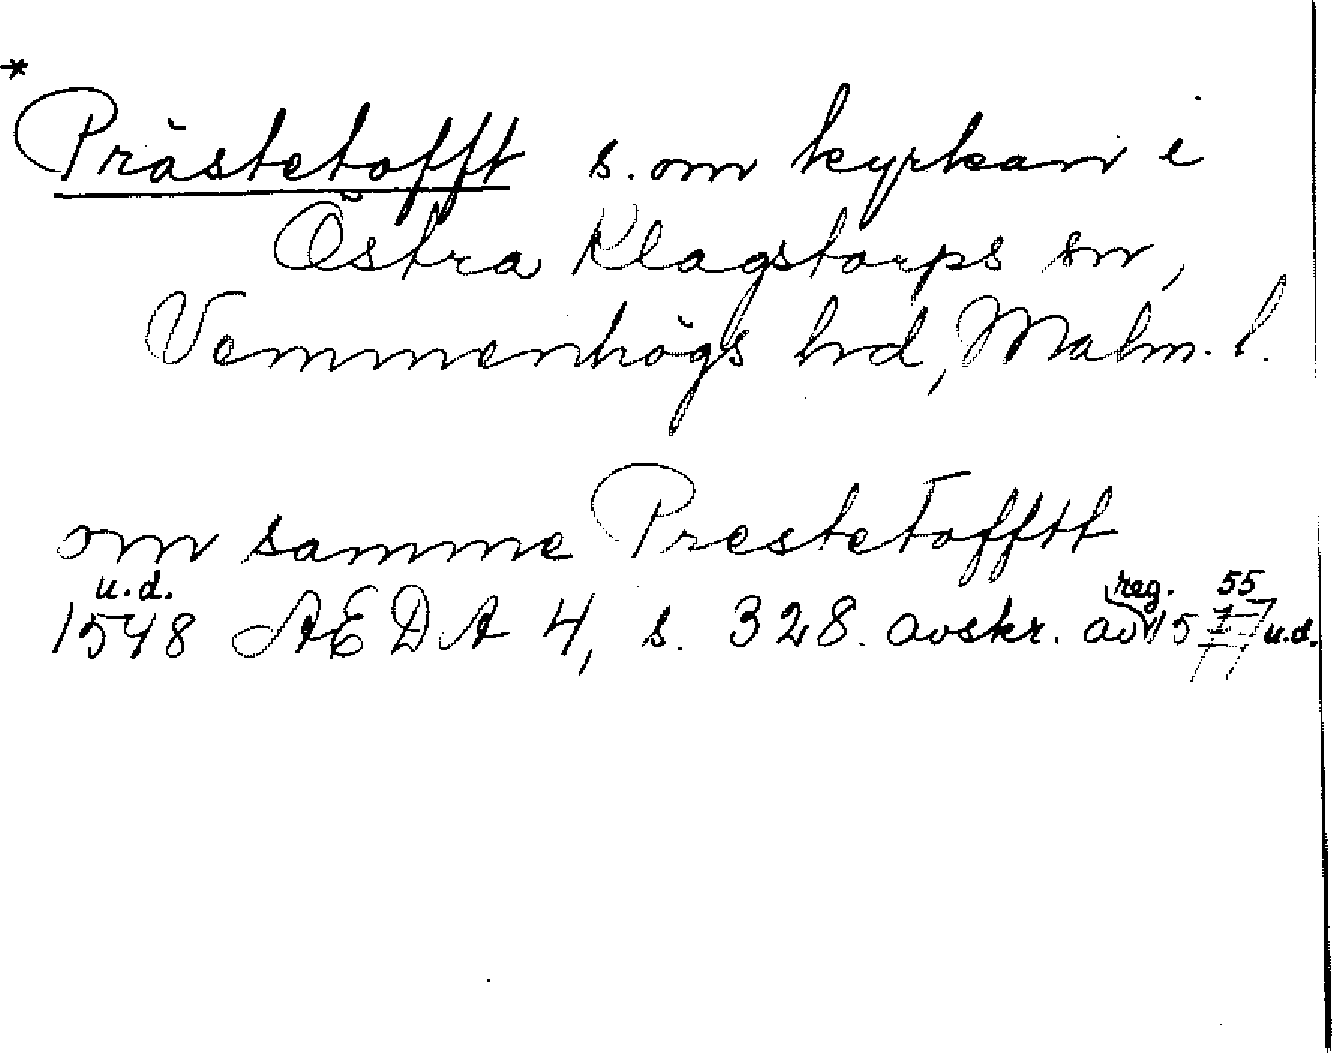 *
Prästetofft s. om kyrkan i
Östra Klagstorps sn,
Vemmenhögs hd, Malm. l.
om samme Prestetofftt
u.d. reg. 55
1548 AEDA 4, s. 328. avskr. av 15 u.d.